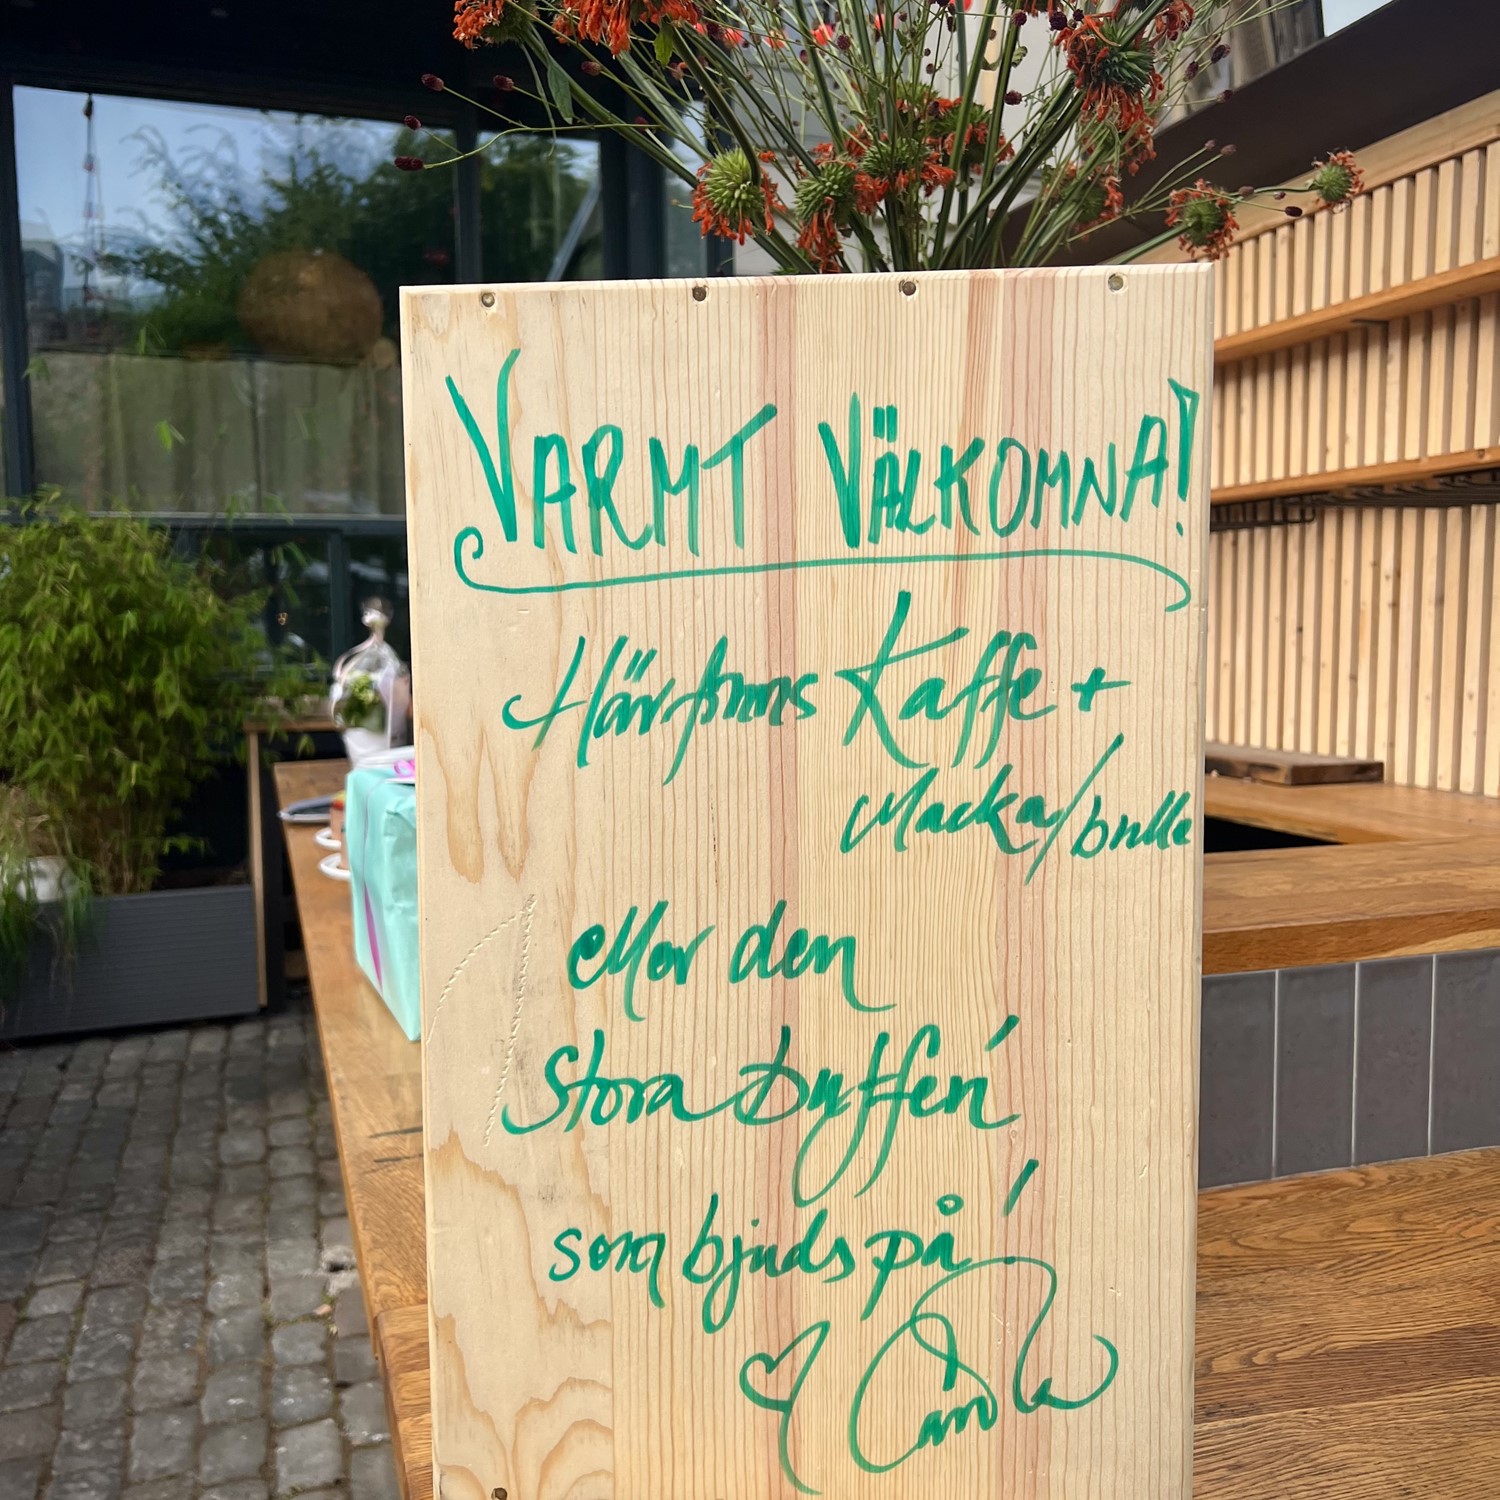 VARMT VÄLKOMNA!
Här finns Kaffe +
Macka/bulle
eller den
stora buffén
som bjuds på!
Carola